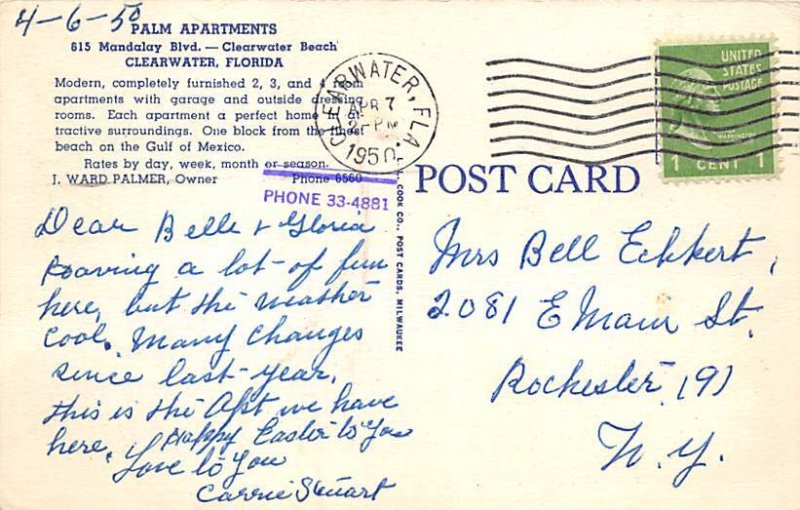 4-6-50
PALM APARTMENTS
615 Mandalay Blvd. — Clearwater Beach
CLEARWATER, FLORIDA
Modern, completely furnished 2, 3, and 4 room
apartments with garage and outside dressing
rooms. Each apartment a perfect home in at-
tractive surroundings. One block from the finest
beach on the Gulf of Mexico.
Rates by day, week, month or season.
J. WARD PALMER, Owner Phone 6560
PHONE 33-4881
CLEARWATER, FLA.
APR 7
2 PM
1950
UNITED
STATES
POSTAGE
WASHINGTON
1 CENT 1
POST CARD
COOK CO., POST CARDS, MILWAUKEE
Dear Belle & Gloria
Having a lot of fun
here, but the weather
cool. Many changes
since last year.
this is the Apt we have
here. Happy Easter to You
Love to You
Carrie Stuart
Mrs Bell Eckkert,
2081 E Main St.
Rochester (9)
N.Y.